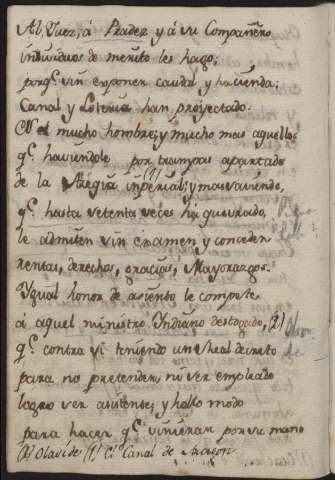 Al Juez, á Pradez y á su Compañero
individuos de merito les hago;
porq.e sin exponer caudal y hacienda,
Canal y Loteria han proyectado.
Es el mucho hombre; y mucho mas aquellos
q.e haviendole por trampas apartado
de la Alegria imperial; (1) y mas saviendo,
q.e hasta setenta veces ha quebrado,
le admiten sin examen y conceden
rentas, derechos, gracias, Mayorazgos.
Ygual honor de asiento le compete
á aquel ministro Yndiano despegado, (2)
q.e contra si teniendo un Real decreto
para no pretender, ni ser empleado
logro ser asistente; y hallo modo
para hacer q.e vinieran por su mano
(2) Olavide (1) El Canal de